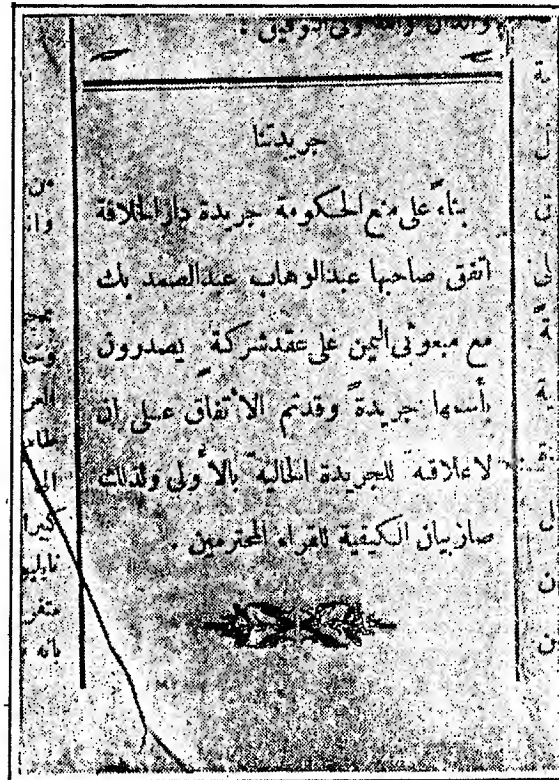 جريدتنا
بناءً على منع الحكومة جريدة دار الخلافة
اتفق صاحبها عبدالوهاب عبدالصمد بك
مع مبعوثى اليمن على عقد شركة يصدرون
بأسمها جريدة وقد تم الأتفاق على ان
لاعلاقة للجريدة الحالية بالأولى ولذلك
صار بيان الكيفية للقراء المحترمين .